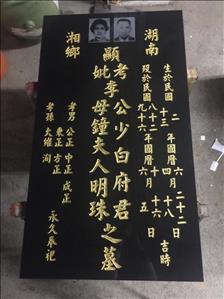 湖南
生於民國 二 十三 年國曆 六 四 月 二十二 十八 日 吉時
歿於民國 八十二 九十六 年國曆 八 六 月 十六 五 日
顯 考 妣 李 公少白府君 母鐘夫人明珠 之墓
湘鄉
孝男 公正 中正 成正
東正 方正
孝孫 大維 洵
永久奉祀